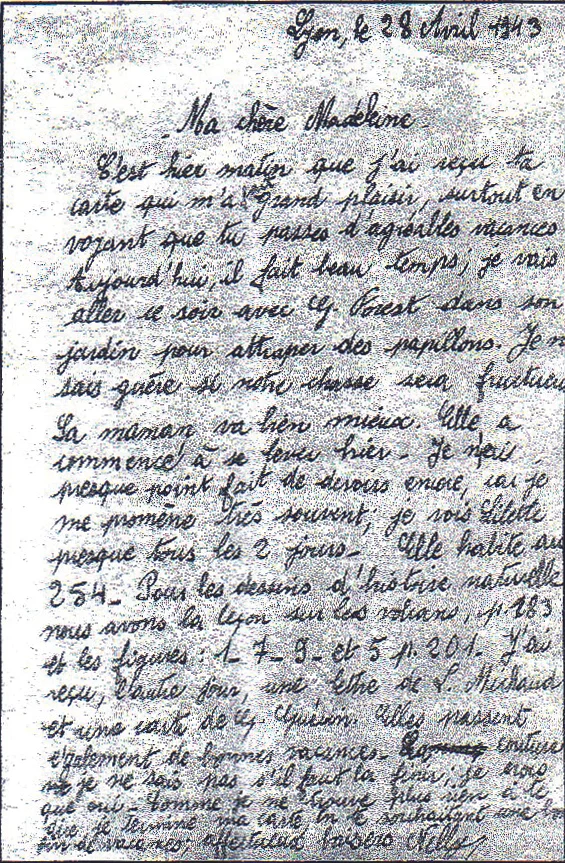 Lyon, le 28 Avril 1943
Ma chère Madeleine
C'est hier matin que j'ai reçu ta
carte qui m'a grand plaisir, surtout en
voyant que tu passes d'agréables vacances
Aujourd'hui, il fait beau temps; je vais
aller ce soir avec G. Forest dans son
jardin pour attraper des papillons. Je n
sais guère si notre chasse sera fructueu
La maman va bien mieux. Elle a
commencé à se lever hier. Je n'ai
presque point fait de devoirs encore, car je
me promène très souvent; je vois Lilette
presque tous les 2 jours. Elle habite au
254. Pour les dessins d'histoire naturelle
nous avons la leçon sur les volcans, p. 183
et les figures: 1 7 9 et 5 p. 201. J'ai
reçu, l'autre jour, une lettre de L. Michaud
et une carte de G. Guérin. Elles passent
également de bonnes vacances. couture
je ne sais pas s'il faut la finir; je crois
que oui. Comme je ne trouve plus rien à te
dire je termine ma carte en te souhaitant une bo
fin de vacances. affectueux baisers Nelly